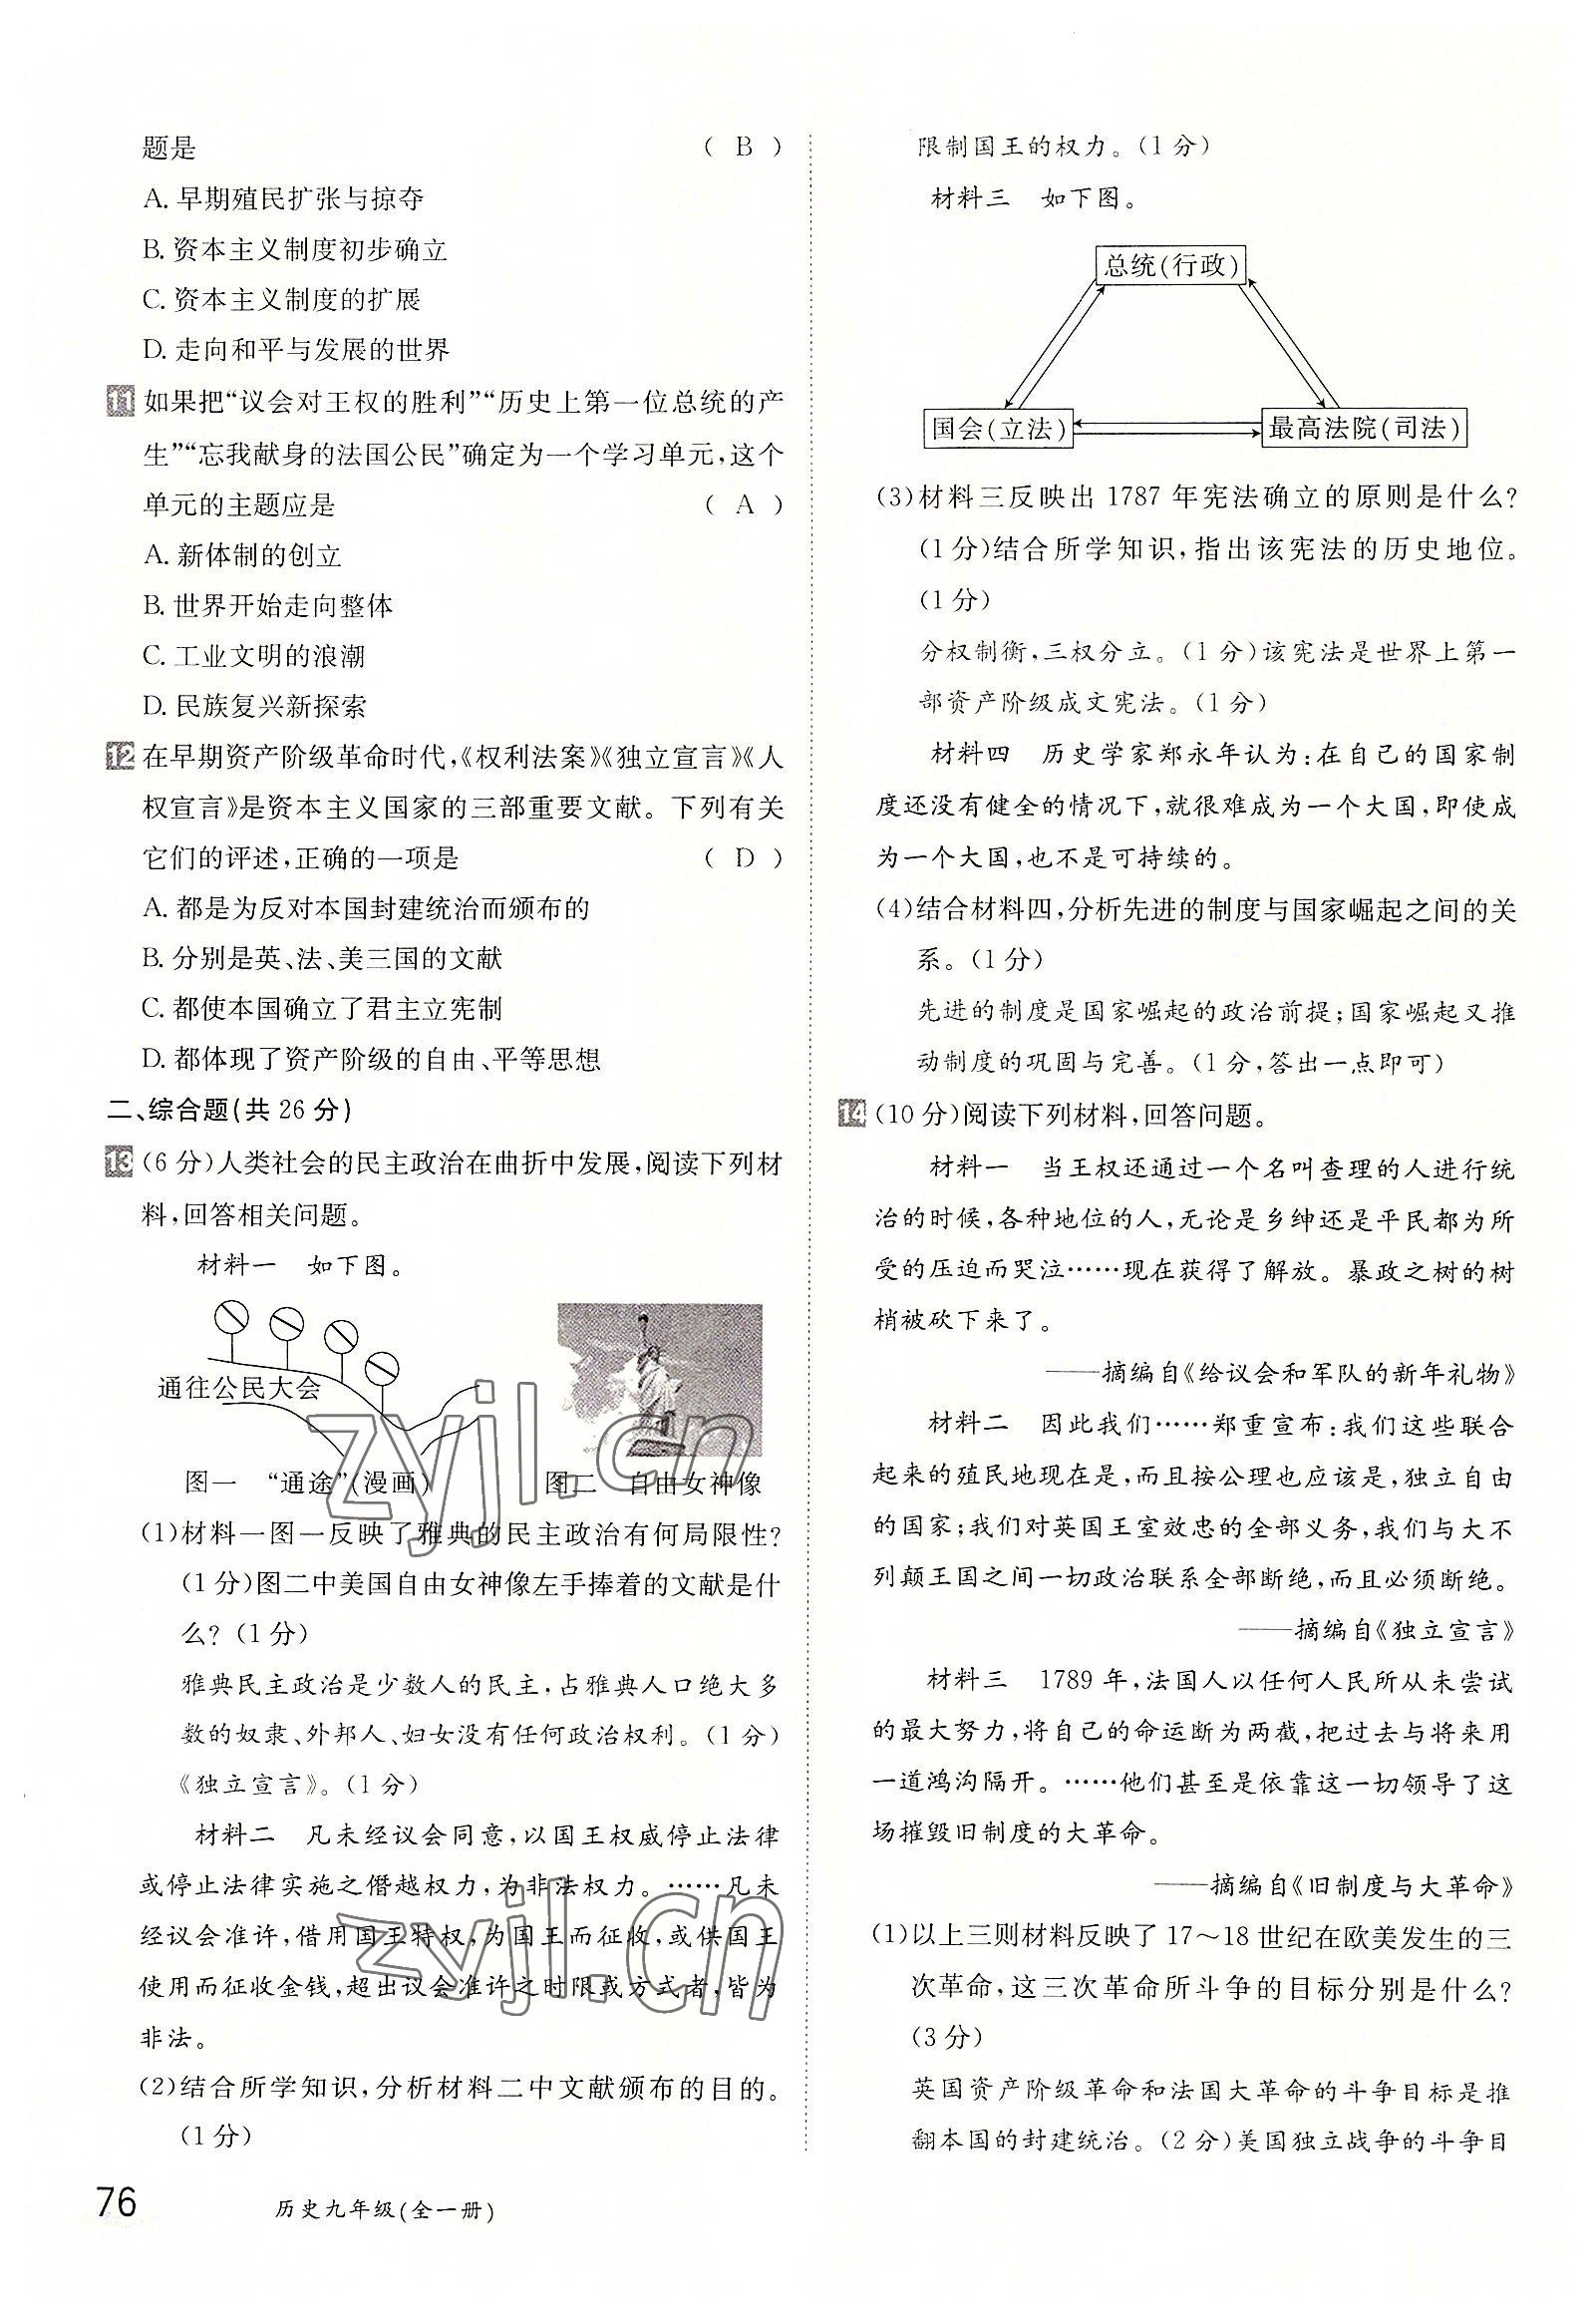 题是 ( B )
A. 早期殖民扩张与掠夺
B. 资本主义制度初步确立
C. 资本主义制度的扩展
D. 走向和平与发展的世界
11 如果把“议会对王权的胜利”“历史上第一位总统的产
生”“忘我献身的法国公民”确定为一个学习单元,这个
单元的主题应是 ( A )
A. 新体制的创立
B. 世界开始走向整体
C. 工业文明的浪潮
D. 民族复兴新探索
12 在早期资产阶级革命时代,《权利法案》《独立宣言》《人
权宣言》是资本主义国家的三部重要文献。下列有关
它们的评述,正确的一项是 ( D )
A. 都是为反对本国封建统治而颁布的
B. 分别是英、法、美三国的文献
C. 都使本国确立了君主立宪制
D. 都体现了资产阶级的自由、平等思想
二、综合题(共 26 分)
13 (6 分)人类社会的民主政治在曲折中发展,阅读下列材
料,回答相关问题。
材料一 如下图。
通往公民大会
图一 “通途”(漫画) 图二 自由女神像
(1)材料一图一反映了雅典的民主政治有何局限性?
(1 分)图二中美国自由女神像左手捧着的文献是什
么?(1 分)
雅典民主政治是少数人的民主,占雅典人口绝大多
数的奴隶、外邦人、妇女没有任何政治权利。(1 分)
《独立宣言》。(1 分)
材料二 凡未经议会同意,以国王权威停止法律
或停止法律实施之僭越权力,为非法权力。……凡未
经议会准许,借用国王特权,为国王而征收,或供国王
使用而征收金钱,超出议会准许之时限或方式者,皆为
非法。
(2)结合所学知识,分析材料二中文献颁布的目的。
(1 分)
76
历史九年级(全一册)
限制国王的权力。(1 分)
材料三 如下图。
总统(行政)
国会(立法) 最高法院(司法)
(3)材料三反映出 1787 年宪法确立的原则是什么?
(1 分)结合所学知识,指出该宪法的历史地位。
(1 分)
分权制衡,三权分立。(1 分)该宪法是世界上第一
部资产阶级成文宪法。(1 分)
材料四 历史学家郑永年认为:在自己的国家制
度还没有健全的情况下,就很难成为一个大国,即使成
为一个大国,也不是可持续的。
(4)结合材料四,分析先进的制度与国家崛起之间的关
系。(1 分)
先进的制度是国家崛起的政治前提;国家崛起又推
动制度的巩固与完善。(1 分,答出一点即可)
14 (10 分)阅读下列材料,回答问题。
材料一 当王权还通过一个名叫查理的人进行统
治的时候,各种地位的人,无论是乡绅还是平民都为所
受的压迫而哭泣……现在获得了解放。暴政之树的树
梢被砍下来了。
——摘编自《给议会和军队的新年礼物》
材料二 因此我们……郑重宣布:我们这些联合
起来的殖民地现在是,而且按公理也应该是,独立自由
的国家;我们对英国王室效忠的全部义务,我们与大不
列颠王国之间一切政治联系全部断绝,而且必须断绝。
——摘编自《独立宣言》
材料三 1789 年,法国人以任何人民所从未尝试
的最大努力,将自己的命运断为两截,把过去与将来用
一道鸿沟隔开。……他们甚至是依靠这一切领导了这
场摧毁旧制度的大革命。
——摘编自《旧制度与大革命》
(1)以上三则材料反映了 17～18 世纪在欧美发生的三
次革命,这三次革命所斗争的目标分别是什么?
(3 分)
英国资产阶级革命和法国大革命的斗争目标是推
翻本国的封建统治。(2 分)美国独立战争的斗争目
zyjl.cn
zyjl.cn